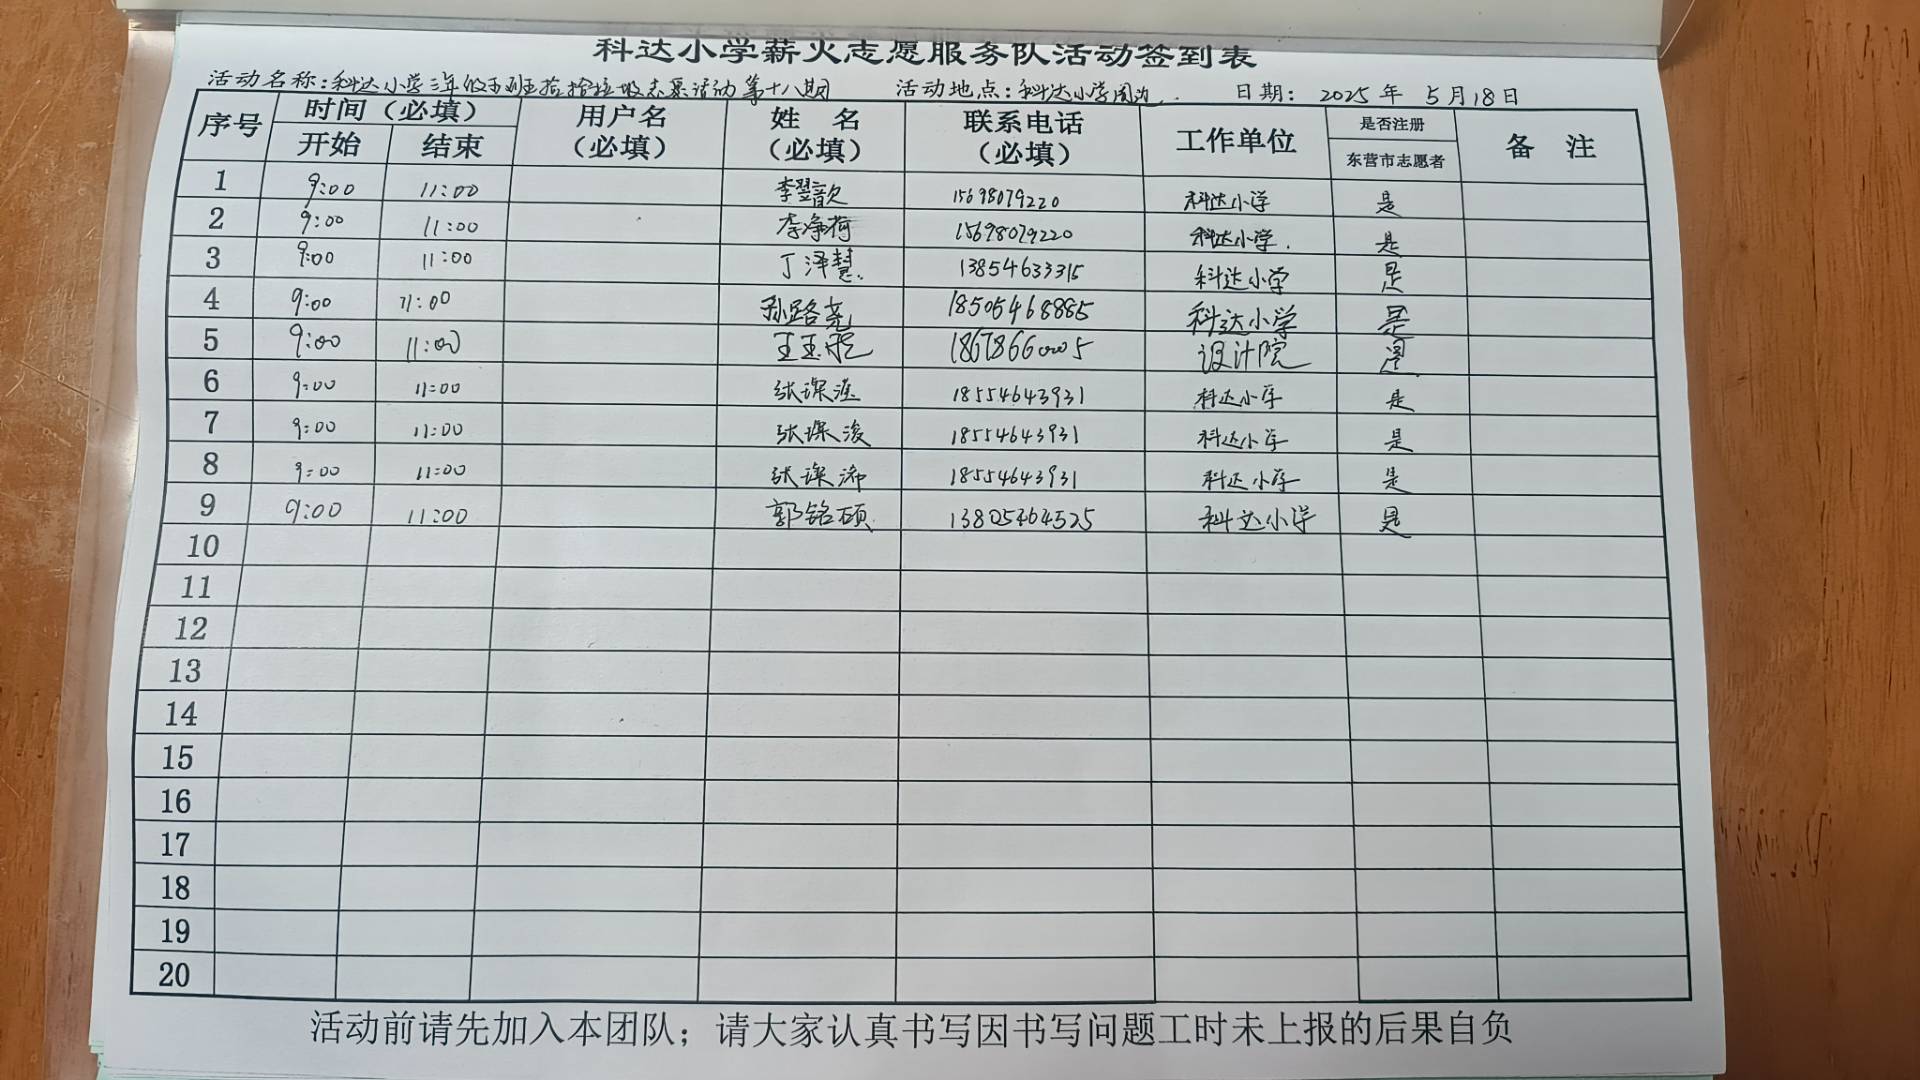 科达小学薪火志愿服务队活动签到表
活动名称：科达小学三年级五班捡拾垃圾志愿活动第十八期 活动地点：科达小学周边. 日期： 2025年 5月18日
序号 时间（必填） 用户名（必填） 姓 名（必填） 联系电话（必填） 工作单位 是否注册 备 注
开始 结束 东营市志愿者
1 9:00 11:00 李翌歆 15698079220 科达小学 是
2 9:00 11:00 李净荷 15698079220 科达小学. 是
3 9:00 11:00 丁泽慧. 13854633315 科达小学 是
4 9:00 11:00 孙路尧 18505468885 科达小学 是
5 9:00 11:00 王玉 18678660005 设计院 是
6 9:00 11:00 张琛 18554643931 科达小学 是
7 9:00 11:00 张琛浚 18554643931 科达小学 是
8 9:00 11:00 张琛浠 18554643931 科达小学 是
9 9:00 11:00 郭铭硕 13805464525 科达小学 是
10
11
12
13
14
15
16
17
18
19
20
活动前请先加入本团队；请大家认真书写因书写问题工时未上报的后果自负